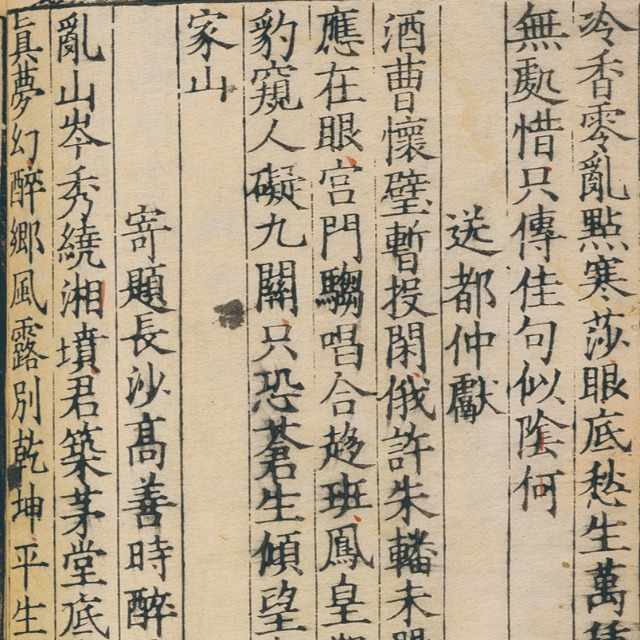 冷香零亂點寒莎眼底愁生萬
無處惜只傳佳句似陰何
送都仲獻
酒曹懷璧暫投閑俄許朱轓未
應在眼宫門騶唱合趍班鳳皇
豹窺人礙九關只恐蒼生傾望
家山
寄題長沙髙善時醉
亂山岑秀繞湘墳君築茅堂底
真夢幻醉鄉風露別乾坤平生